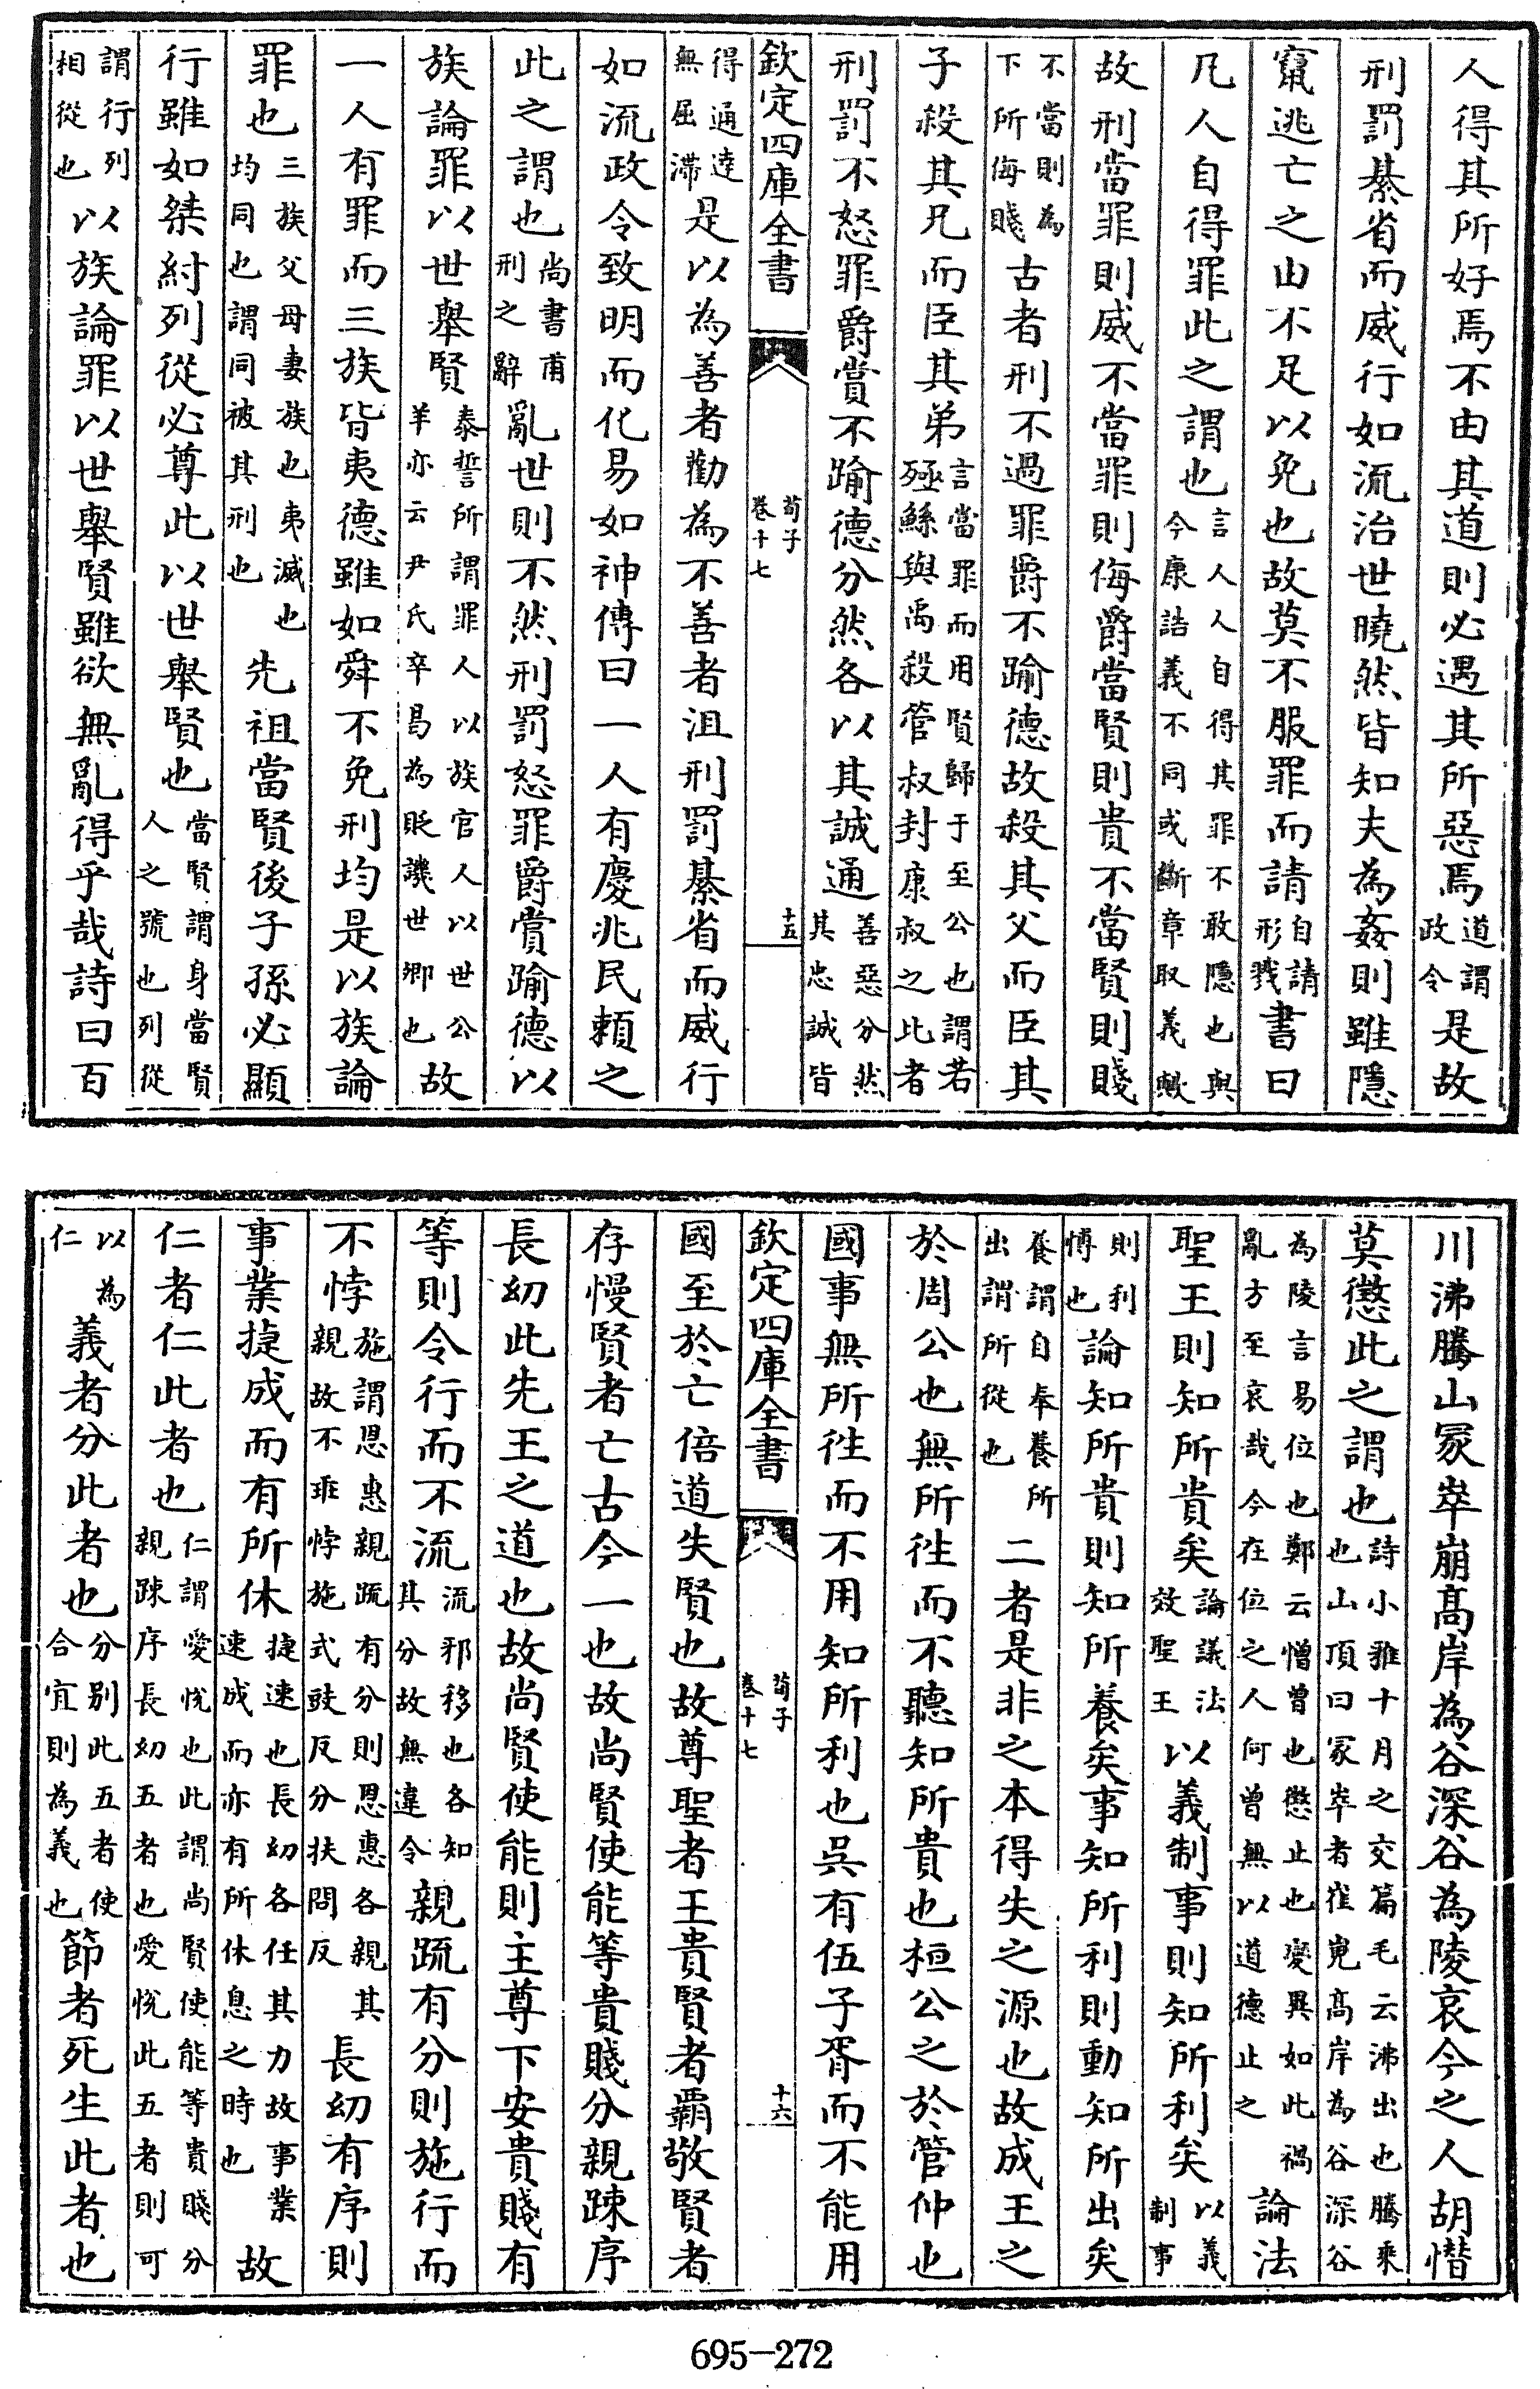 人得其所好焉不由其道則必遇其所惡焉道謂政令是故
刑罰綦省而威行如流治世曉然皆知夫為姦則雖隱
竄逃亡之由不足以免也故莫不服罪而請自請形戮書曰
凡人自得罪此之謂也言人人自得其罪不敢隱也與今康誥義不同或斷章取義歟
故刑當罪則威不當罪則侮爵當賢則貴不當賢則賤
不當則為下所侮賤古者刑不過罪爵不踰德故殺其父而臣其
子殺其兄而臣其弟言當罪而用賢歸于至公也謂若殛鯀與禹殺管叔封康叔之比者
刑罰不怒罪爵賞不踰德分然各以其誠通善惡分然其忠誠皆
欽定四庫全書 荀子卷十七 十五
得通達無屈滯是以為善者勸為不善者沮刑罰綦省而威行
如流政令致明而化易如神傳曰一人有慶兆民賴之
此之謂也尚書甫刑之辭亂世則不然刑罰怒罪爵賞踰德以
族論罪以世舉賢泰誓所謂罪人以族官人以世公羊亦云尹氏卒曷為貶譏世卿也故
一人有罪而三族皆夷德雖如舜不免刑均是以族論
罪也三族父母妻族也夷滅也均同也謂同被其刑也先祖當賢後子孫必顯
行雖如桀紂列從必尊此以世舉賢也當賢謂身當賢人之號也列從
謂行列相從也以族論罪以世舉賢雖欲無亂得乎哉詩曰百
川沸騰山冡崒崩髙岸為谷深谷為陵哀今之人胡憯
莫懲此之謂也詩小雅十月之交篇毛云沸出也騰乘也山頂曰冡崒者崔嵬髙岸為谷深谷
為陵言易位也鄭云憯曾也懲止也變異如此禍亂方至哀哉今在位之人何曾無以道德止之論法
聖王則知所貴矣論議法效聖王以義制事則知所利矣以義制事
則利愽也論知所貴則知所養矣事知所利則動知所出矣
養謂自奉養所出謂所從也二者是非之本得失之源也故成王之
於周公也無所往而不聽知所貴也桓公之於管仲也
國事無所往而不用知所利也吳有伍子胥而不能用
欽定四庫全書 荀子卷十七 十六
國至於亡倍道失賢也故尊聖者王貴賢者霸敬賢者
存慢賢者亡古今一也故尚賢使能等貴賤分親疎序
長幼此先王之道也故尚賢使能則主尊下安貴賤有
等則令行而不流流邪移也各知其分故無違令親疏有分則施行而
不悖施謂恩惠親疏有分則恩惠各親其親故不班悖施式豉反分扶問反長幼有序則
事業捷成而有所休捷速也長幼各任其力故事業速成而亦有所休息之時也故
仁者仁此者也仁謂愛悅也此謂尚賢使能等貴賤分親疎序長幼五者也愛悅此五者則可
以為仁義者分此者也分別此五者使合宜則為義也節者死生此者也
695-272